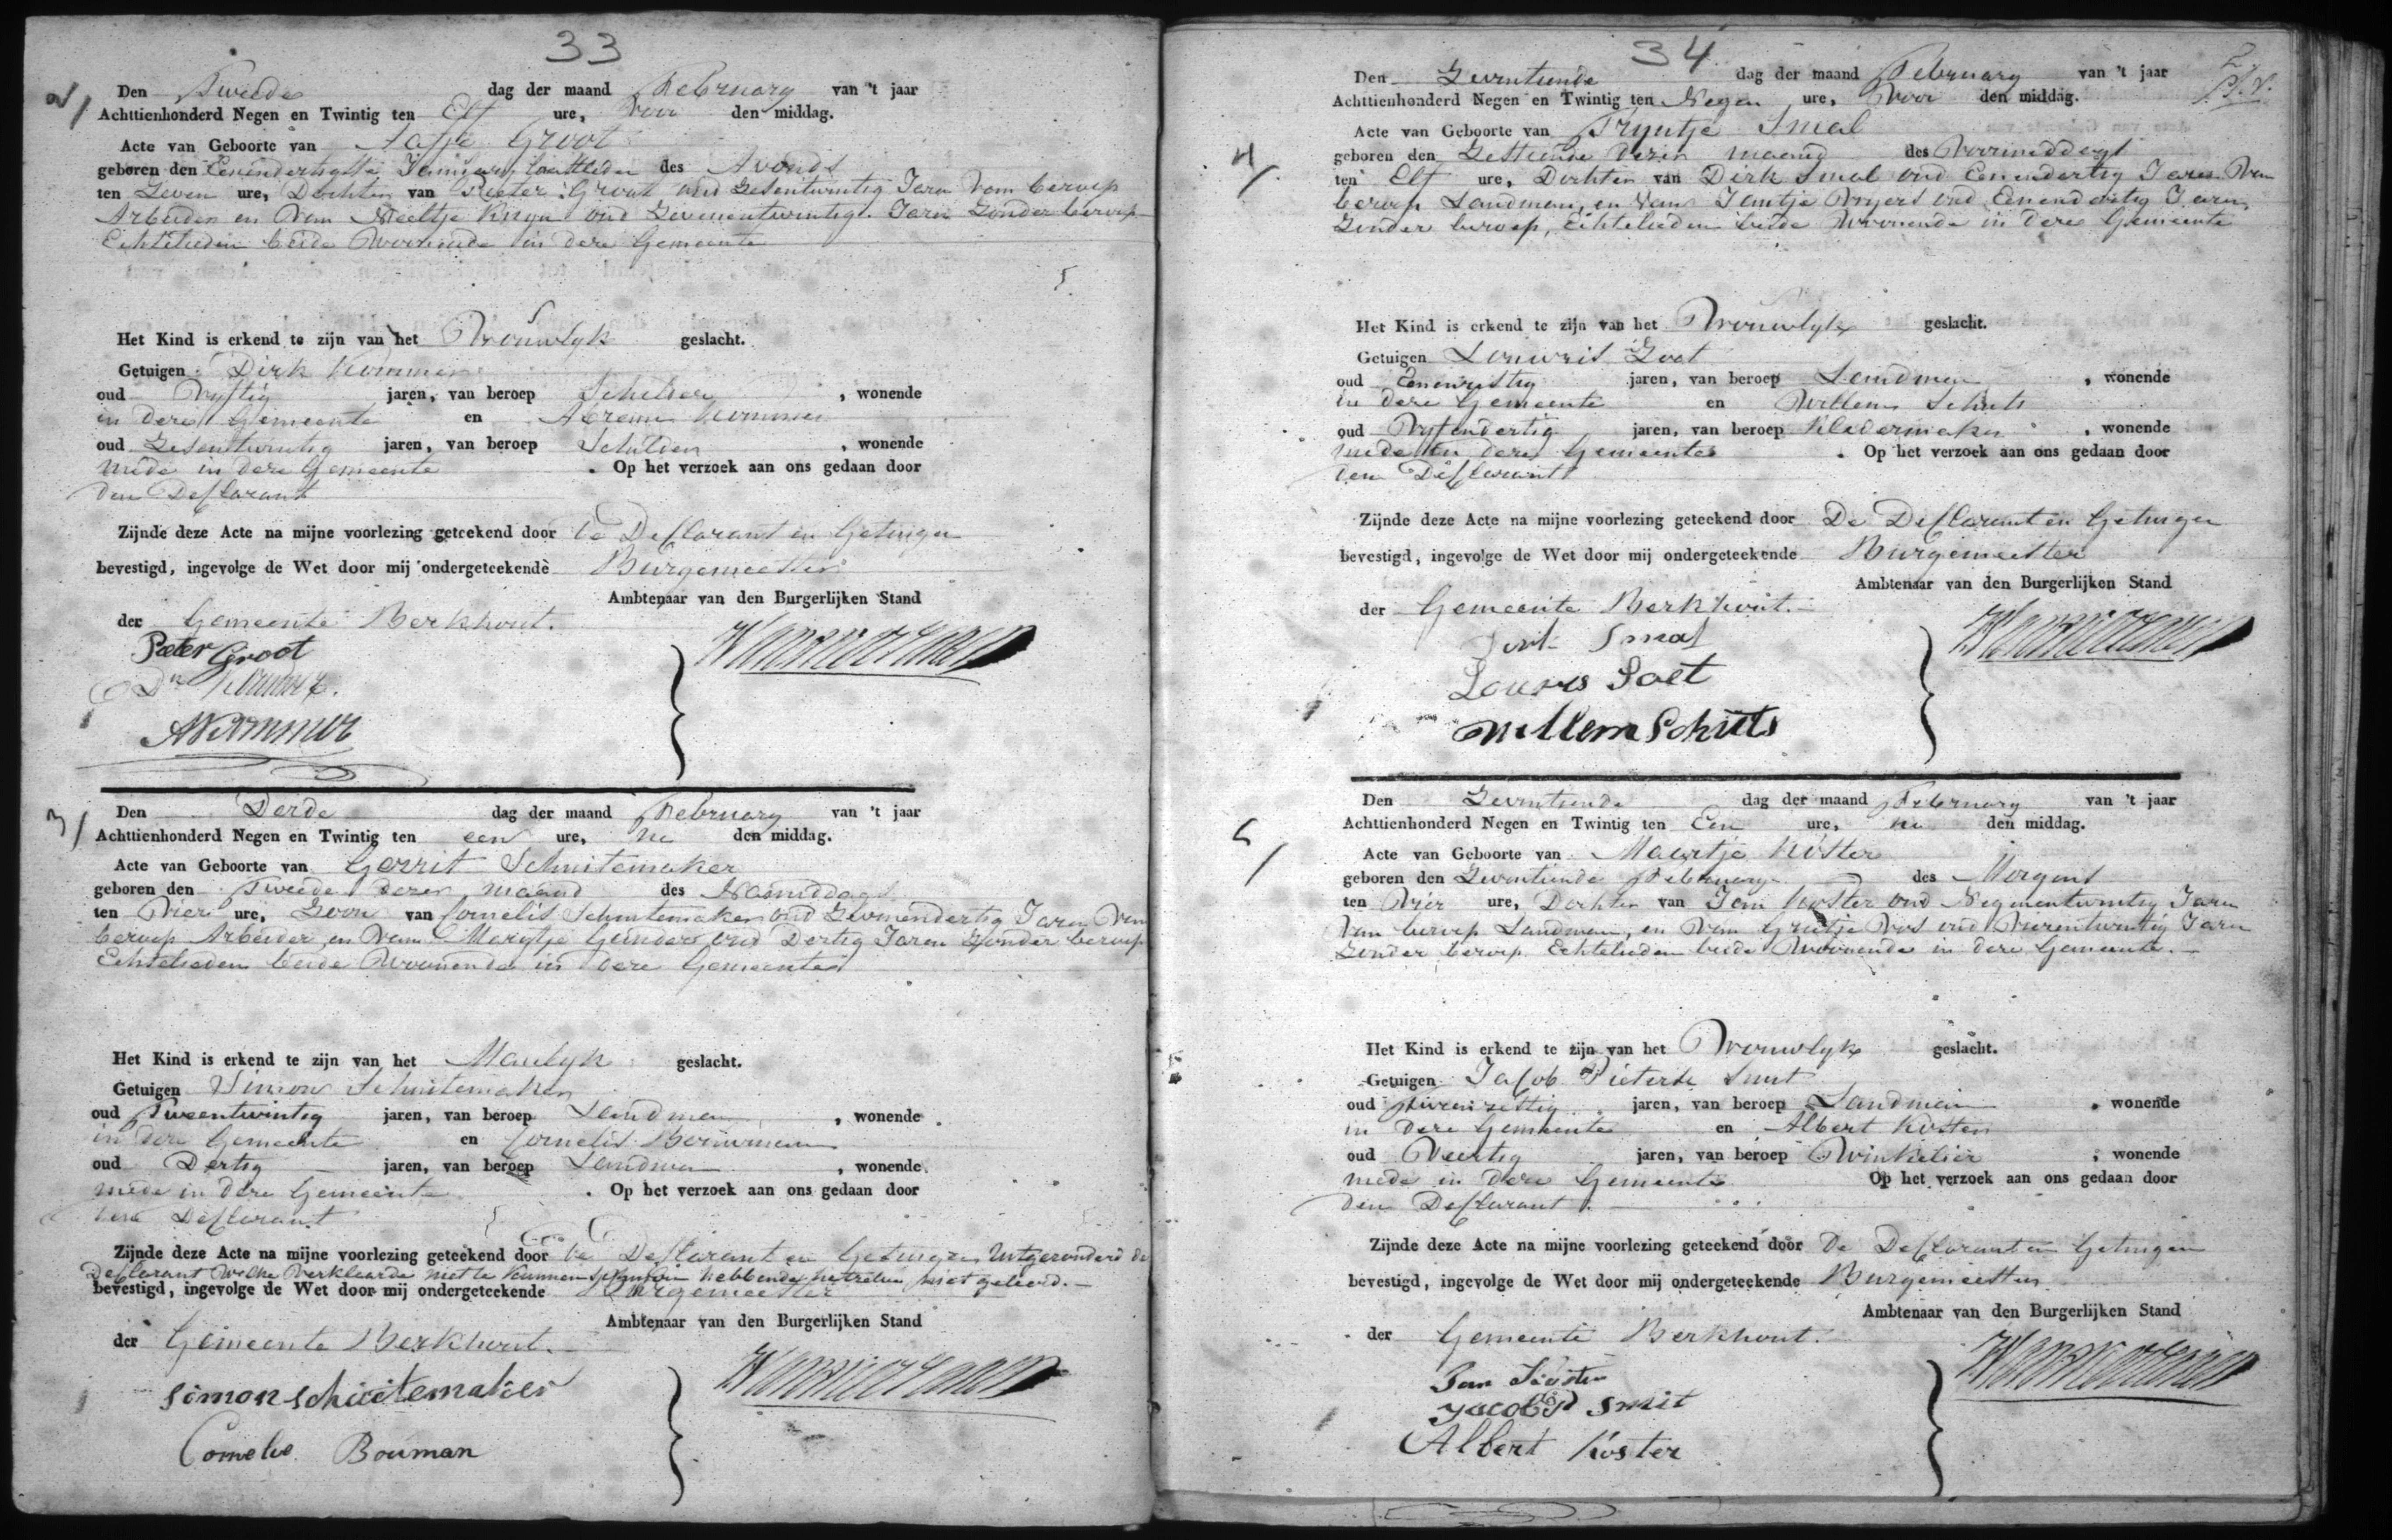 33
2/
Den Tweede dag der maand February van 't jaar
Achttienhonderd Negen en Twintig ten Elf ure, voor den middag.
Acte van Geboorte van Aafje Groot
geboren den Eenendertigste January laatleden des Avonds
ten Zeven ure, Dochter van Pieter Groot oud Zesentwintig Jaren van beroep
Arbeider en van Neeltje oud Zevenentwintig Jaren Zonder beroep
Echtelieden beide Woonende in deze Gemeente
Het Kind is erkend te zijn van het Vrouwlyk geslacht.
Getuigen Dirk Kommer
oud Vyftig jaren, van beroep Schilder, wonende
in deze Gemeente en Abram Kommer
oud Zesentwintig jaren, van beroep Schilder, wonende
mede in deze Gemeente. Op het verzoek aan ons gedaan door
den Deklarant
Zijnde deze Acte na mijne voorlezing geteekend door De Deklarant en Getuigen
bevestigd, ingevolge de Wet door mij ondergeteekende Burgemeester
Ambtenaar van den Burgerlijken Stand
der Gemeente Berkhout.
Pieter Groot
Dk Kommer.
AKommer
3/
Den Derde dag der maand February van 't jaar
Achttienhonderd Negen en Twintig ten een ure, na den middag.
Acte van Geboorte van Gerrit Schuitemaker
geboren den Tweede dezer maand des Namiddags
ten Vier ure, Zoon van Cornelis Schuitemaker oud Zevenendertig Jaren Van
beroep Arbeider en van Marytje oud Dertig Jaren Zonder beroep
Echtelieden beide Woonende in deze Gemeente
Het Kind is erkend te zijn van het Manlyk geslacht.
Getuigen Simon Schuitemaker
oud Tweentwintig jaren, van beroep Landman, wonende
in deze Gemeente en Cornelis Bouwman
oud Dertig jaren, van beroep Landman, wonende
mede in deze Gemeente. Op het verzoek aan ons gedaan door
den Deklarant
Zijnde deze Acte na mijne voorlezing geteekend door de Deklarant en Getuigen Uitgezonderd de
Deklarant Welke Verklaarde niet te kunnen hebbende hetzelve niet geleerd.
bevestigd, ingevolge de Wet door mij ondergeteekende Burgemeester
Ambtenaar van den Burgerlijken Stand
der Gemeente Berkhout.
simon schuitemaker
Cornelis Bouman
34
4/
Den Zeventiende dag der maand February van 't jaar
Achttienhonderd Negen en Twintig ten Negen ure, Voor den middag.
Acte van Geboorte van Tryntje Smal
geboren den Zestiende dezer maand des Voormiddags
ten Elf ure, Dochter van Dirk Smal oud Eenendertig Jaren Van
beroep Landman, en van Jantje Vryers oud Eenendertig Jaren,
Zonder beroep, Echtelieden beide Woonende in deze Gemeente
Het Kind is erkend te zijn van het Vrouwlyk geslacht.
Getuigen Louwris Zoet
oud jaren, van beroep Landman, wonende
in deze Gemeente en Willem Schuts
oud Vyfendertig jaren, van beroep Kledermaker, wonende
mede in deze Gemeente. Op het verzoek aan ons gedaan door
den Deklarant
Zijnde deze Acte na mijne voorlezing geteekend door De Deklarant en Getuigen
bevestigd, ingevolge de Wet door mij ondergeteekende Burgemeester
Ambtenaar van den Burgerlijken Stand
der Gemeente Berkhout.
Smal
Louris Soet
Willem Schuts
5/
Den Zeventiende dag der maand February van 't jaar
Achttienhonderd Negen en Twintig ten Een ure, na den middag.
Acte van Geboorte van Maartje Köster
geboren den Zeventiende February des Morgens
ten Vier ure, Dochter van Jan Koster oud Negenentwintig Jaren
Van beroep Landman, en Van Grietje Vos oud Vierentwintig Jaren
Zonder beroep Echtelieden beide Woonende in deze Gemeente.
Het Kind is erkend te zijn van het Vrouwlyk geslacht.
Getuigen Jakob Pieterse Smit
oud jaren, van beroep Landman, wonende
in deze Gemeente en Albert Koster
oud Veertig jaren, van beroep Winkelier, wonende
mede in deze Gemeente Op het verzoek aan ons gedaan door
den Deklarant.
Zijnde deze Acte na mijne voorlezing geteekend door De Deklarant en Getuigen
bevestigd, ingevolge de Wet door mij ondergeteekende Burgemeester
Ambtenaar van den Burgerlijken Stand
der Gemeente Berkhout.
Jan Köster
Jacob P Smit
Albert Köster